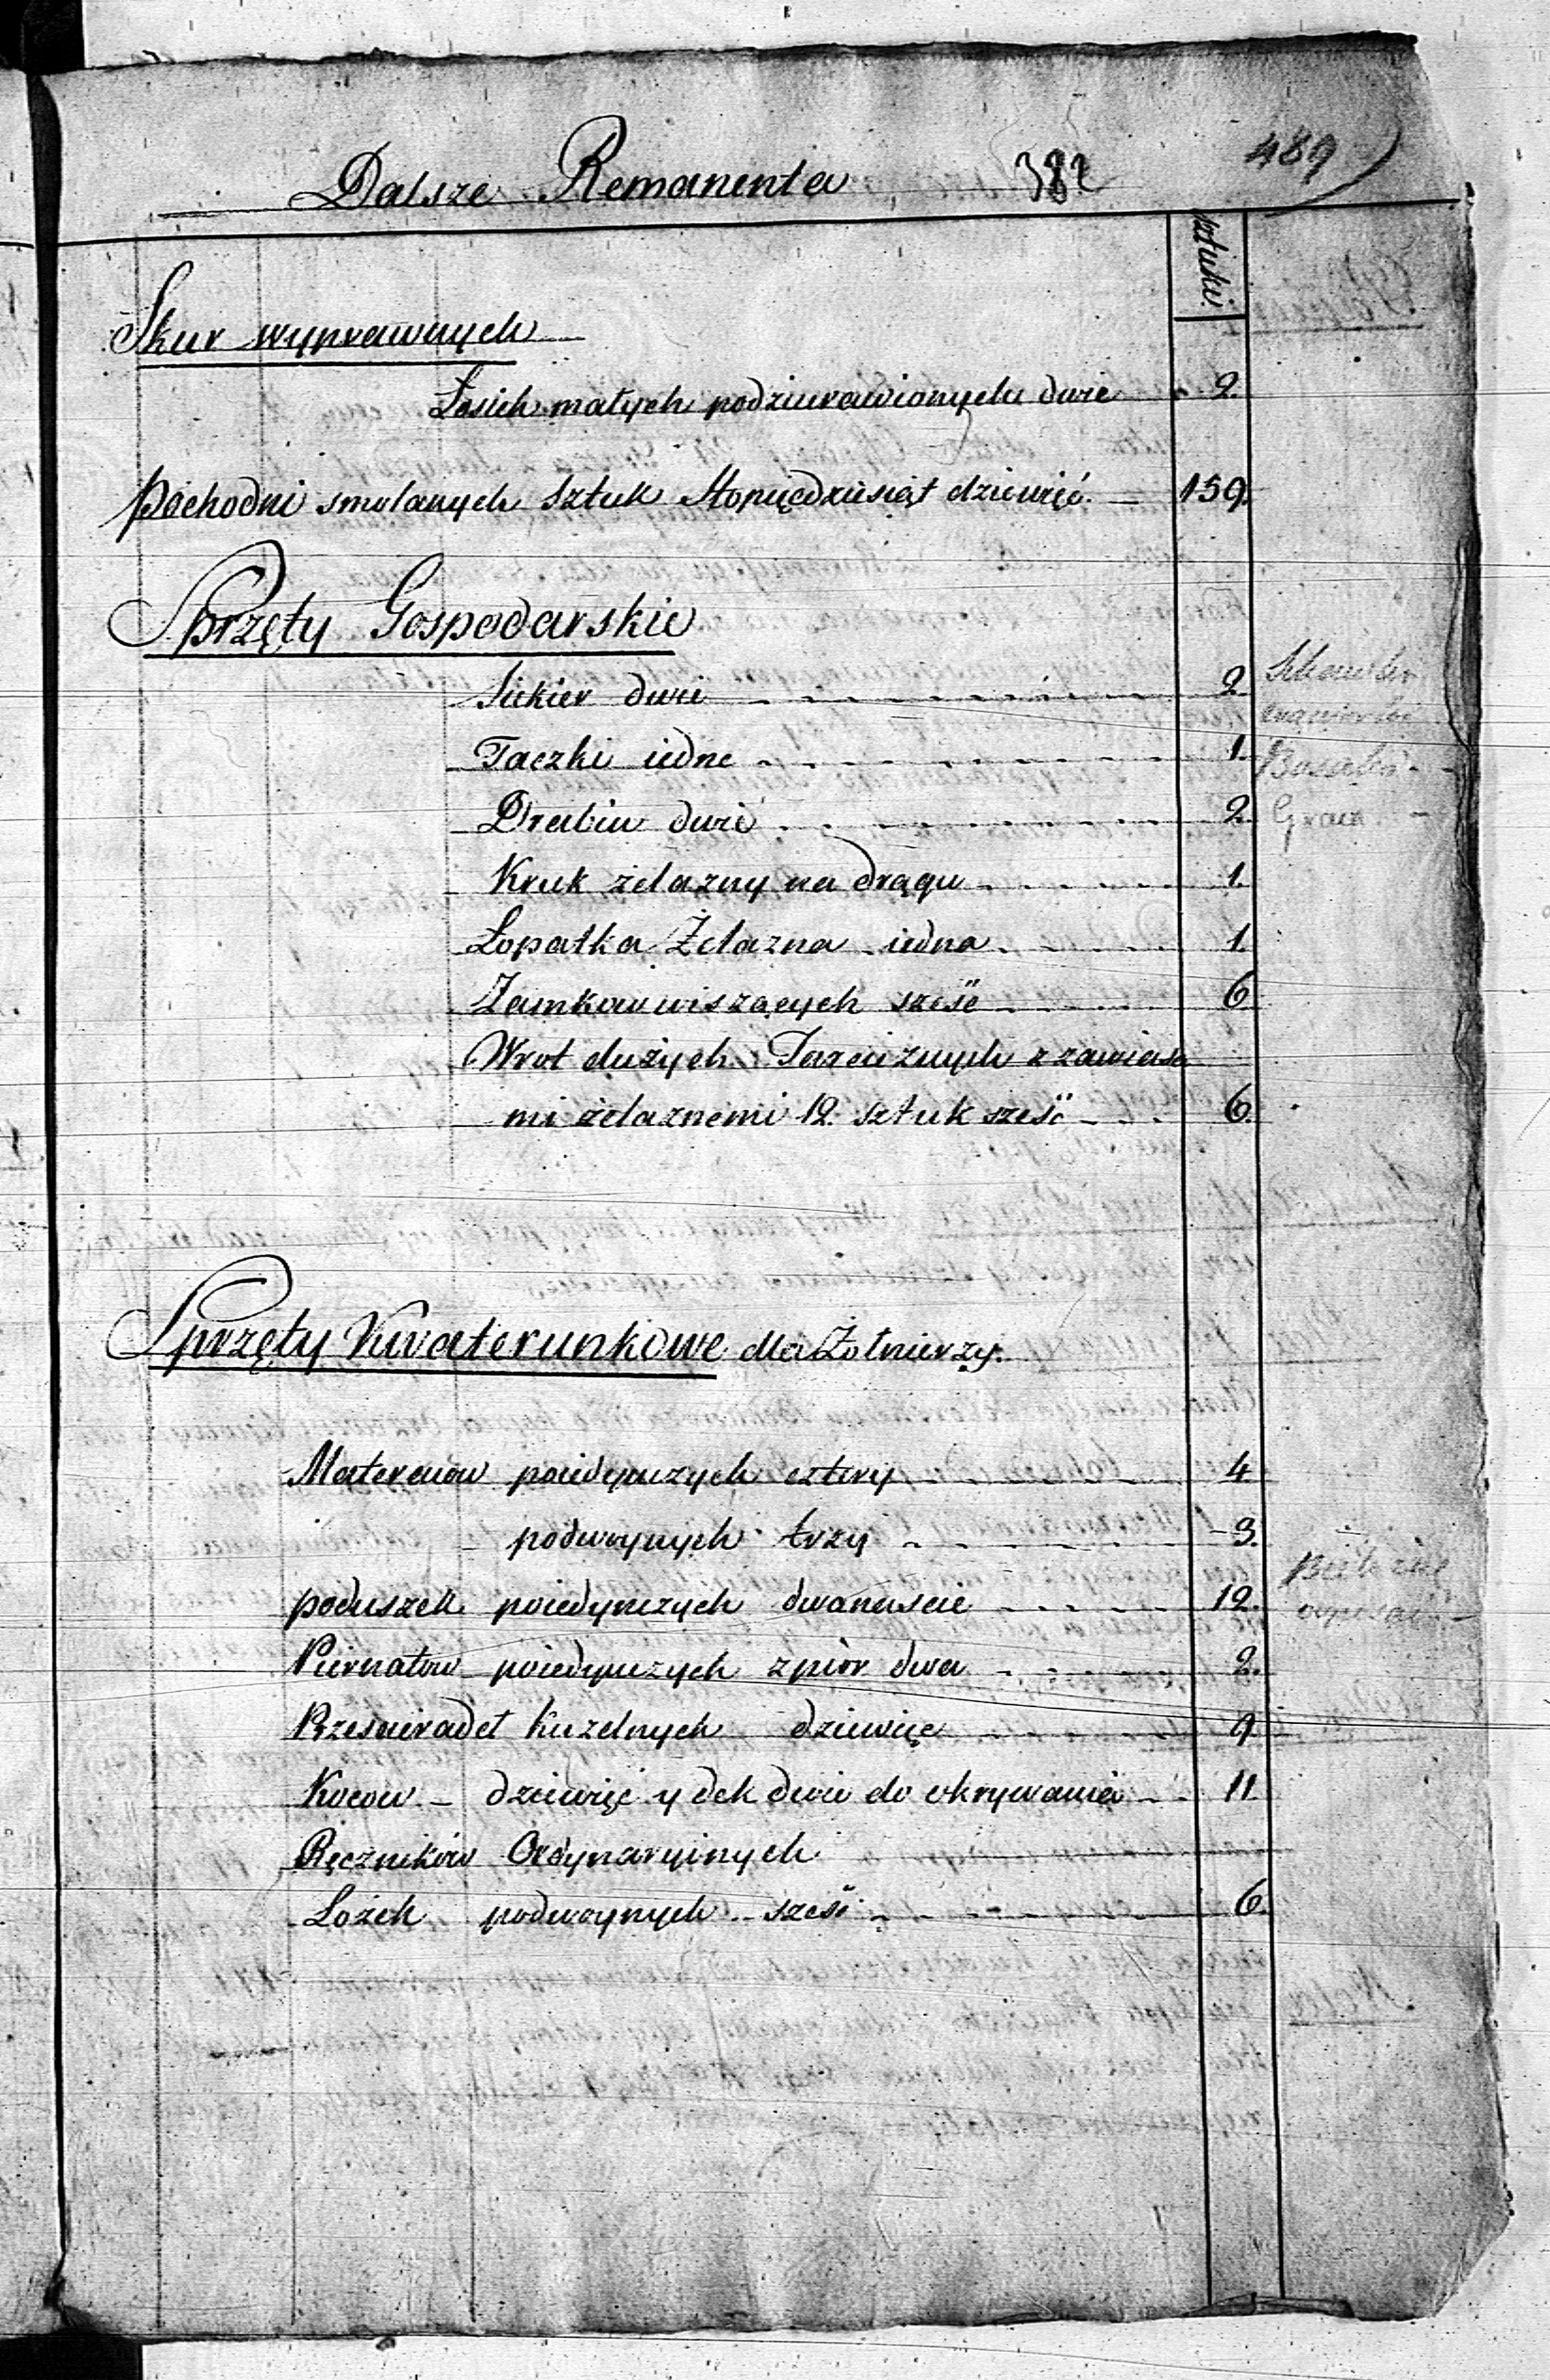 Dalsze Remanenta 382 489
sztuki.
Skur wyprawnych
Łosich małych podziurawionych dwie 2.
pochodni smolanych Sztuk Stopięcdziesiąt dziewięć. 159.
Sprzęty Gospodarskie
Siekier dwie 2
Taczki iedne 1.
Drabin dwie 2.
Kruk żelazny na drągu 1.
Łopatka Żelazna iedna 1.
Zamkow wiszących sześć 6
Wrot dużych Tarcicznych z zawiasa
mi żelaznemi 12. sztuk sześć 6.
Sprzęty Kwaterunkowe dla Żołnierzy.
Materacow poiedynczych cztery 4
podwoynych trzy 3.
poduszek poiedynczych dwanascie 12.
Piernatow poiedynczych z piór dwa 2.
Przescieradeł Kuzelnych dziewięc 9
Kocow dziewięć y dek dwie do okrywania 11.
Ręczników Ordynaryinych
Łożek podwoynych sześć 6.